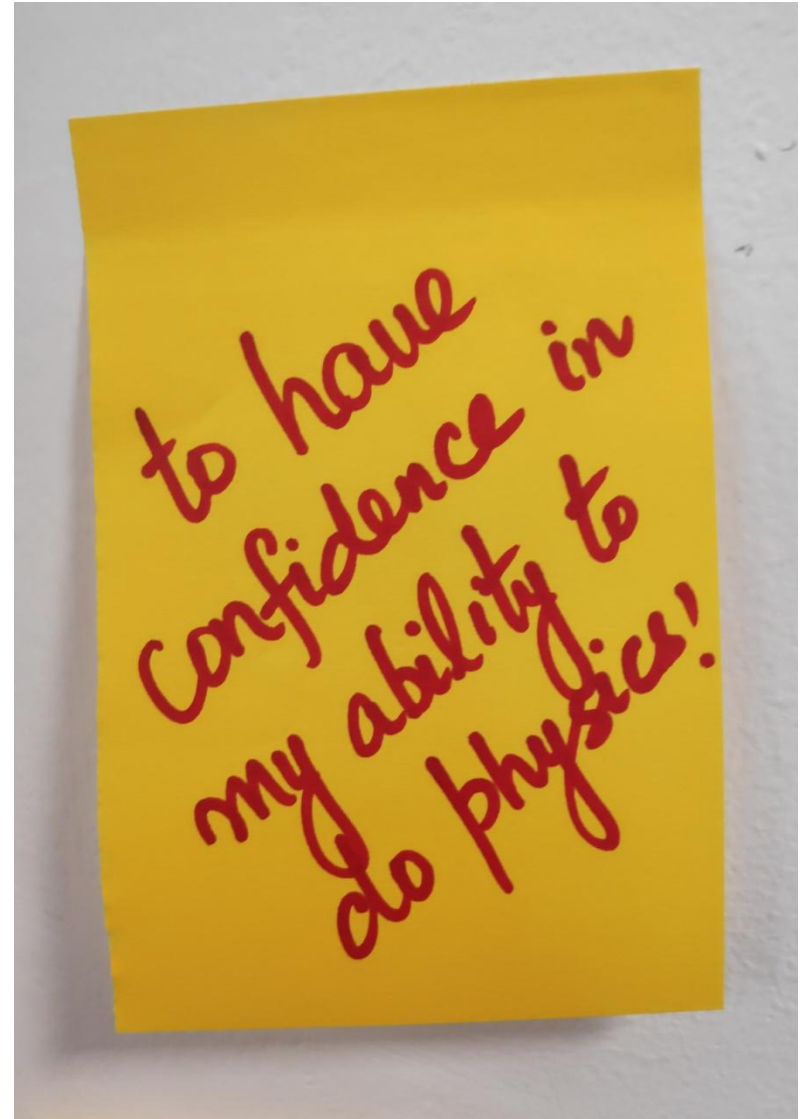 to have
confidence in
my ability to
do physics!